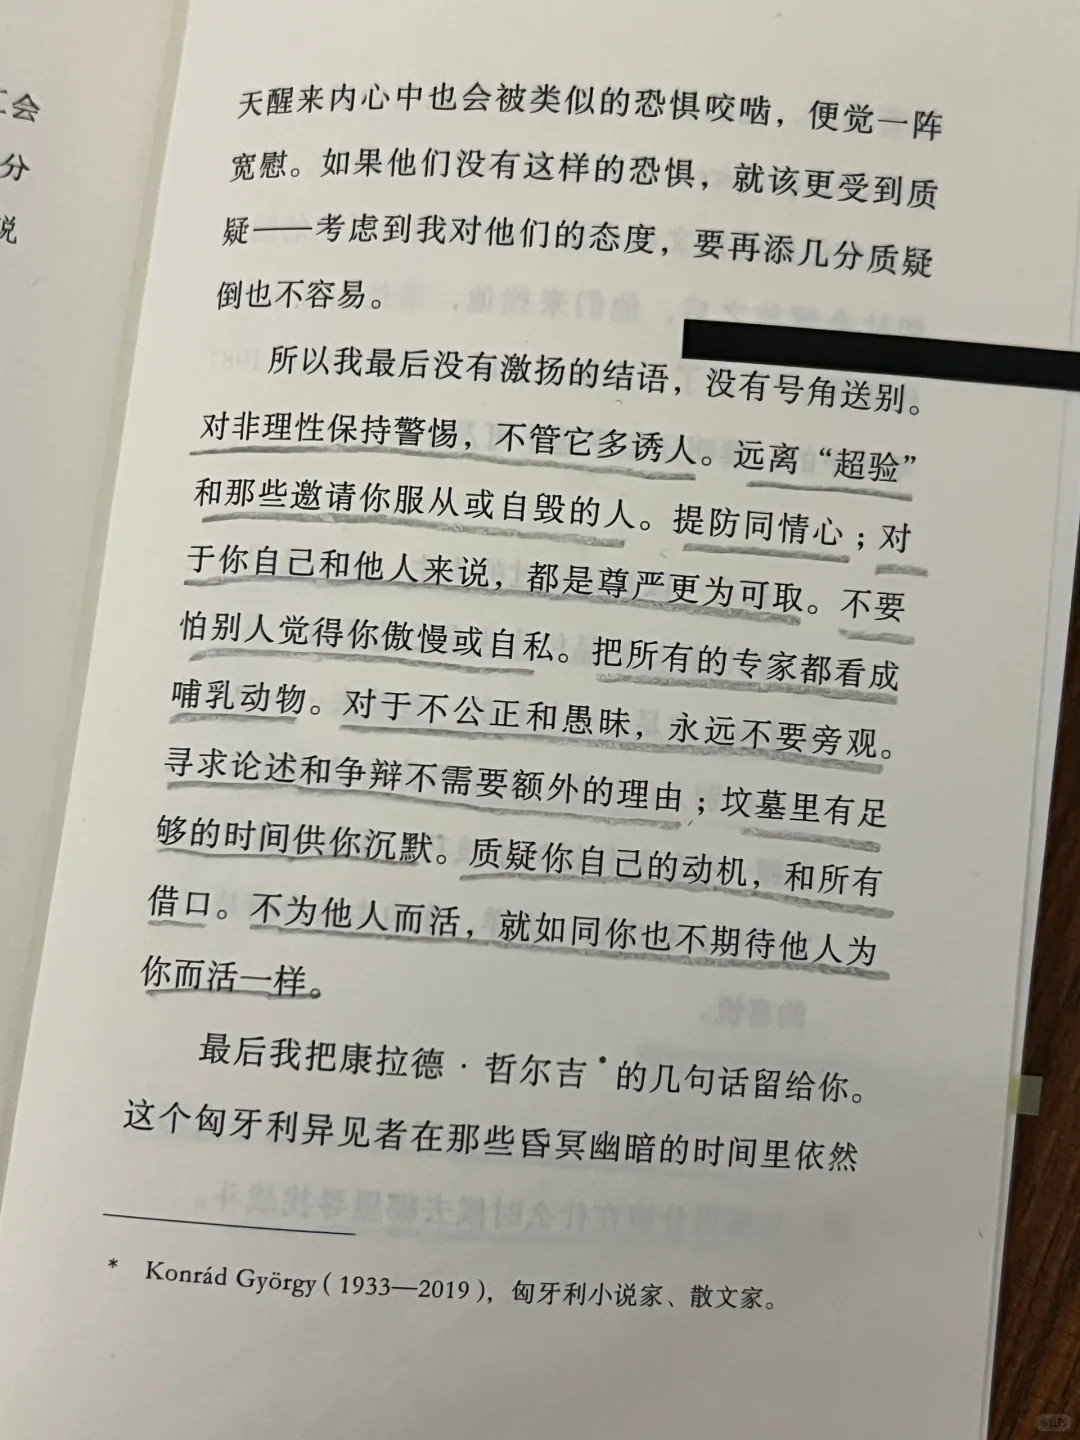 工会
分
说
天醒来内心中也会被类似的恐惧咬啮，便觉一阵
宽慰。如果他们没有这样的恐惧，就该更受到质
疑——考虑到我对他们的态度，要再添几分质疑
倒也不容易。
所以我最后没有激扬的结语，没有号角送别。
对非理性保持警惕，不管它多诱人。远离“超验”
和那些邀请你服从或自毁的人。提防同情心；对
于你自己和他人来说，都是尊严更为可取。不要
怕别人觉得你傲慢或自私。把所有的专家都看成
哺乳动物。对于不公正和愚昧，永远不要旁观。
寻求论述和争辩不需要额外的理由；坟墓里有足
够的时间供你沉默。质疑你自己的动机，和所有
借口。不为他人而活，就如同你也不期待他人为
你而活一样。
最后我把康拉德·哲尔吉*的几句话留给你。
这个匈牙利异见者在那些昏冥幽暗的时间里依然
* Konrád György（1933—2019），匈牙利小说家、散文家。